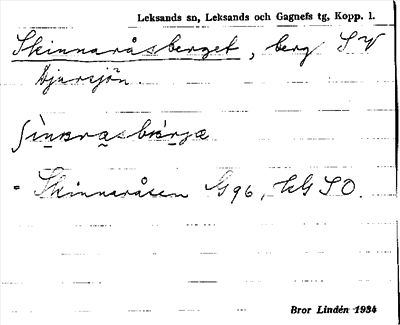 Leksands sn, Leksands och Gagnefs tg, Kopp. l.
Skinnaråsberget, berg SV
Djursjön.
ʃìnɐrasbærjæ
= Skinnaråsen G96, hG SO.
Bror Lindén 1934